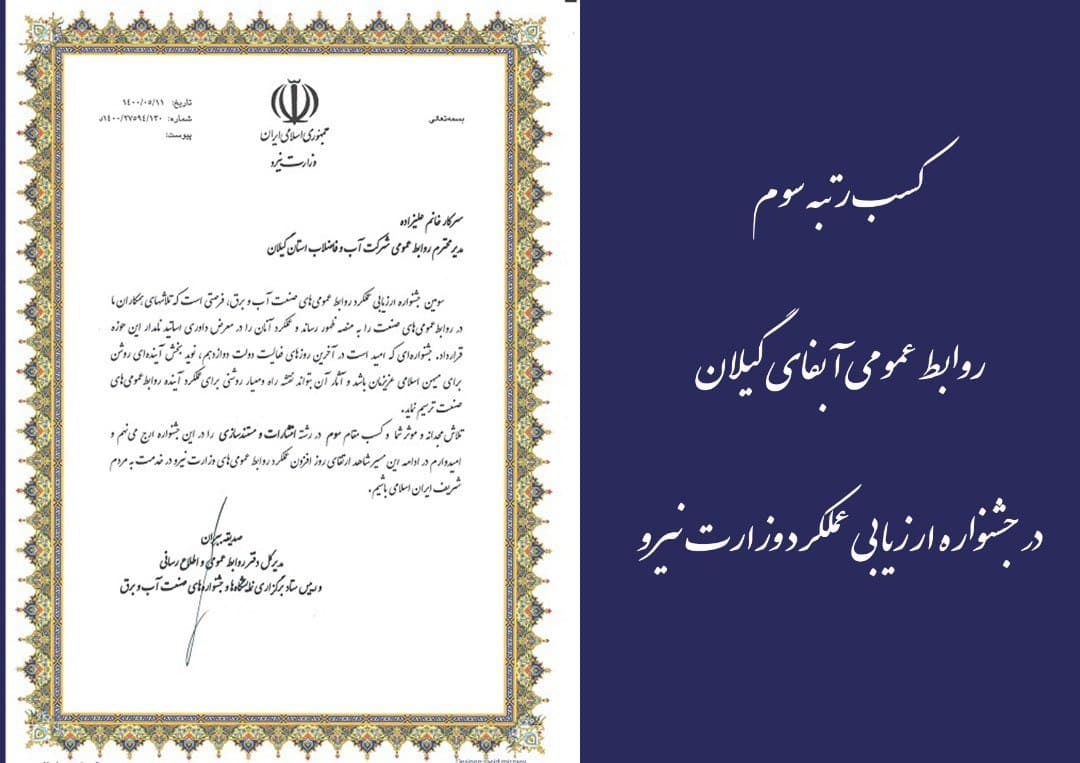 بسمه‌تعالی
جمهوری اسلامی ایران
وزارت نیرو
تاریخ: ۱۴۰۰/۰۵/۱۱
شماره: ۱۴۰۰/۲۷۵۹۴/۱۳۰د
پیوست:
سرکار خانم علیزاده
مدیر محترم روابط عمومی شرکت آب و فاضلاب استان گیلان
سومین جشنواره ارزیابی عملکرد روابط عمومی‌های صنعت آب و برق، فرصتی است که تلاشهای همکاران ما
در روابط‌عمومی‌های صنعت را به منصه ظهور رساند و عملکرد آنان را در معرض داوری اساتید نامدار این حوزه
قرار داد. جشنواره‌ای که امید است در آخرین روزهای فعالیت دولت دوازدهم، نوید بخش آینده‌ای روشن
برای میهن اسلامی عزیزمان باشد و آثار آن بتواند نقشه راه و معیار روشنی برای عملکرد آینده روابط‌عمومی‌های
صنعت ترسیم نماید.
تلاش مجدانه و موثر شما و کسب مقام سوم در رشته انتشارات و مستندسازی را در این جشنواره ارج می‌نهم و
امیدوارم در ادامه این مسیر شاهد ارتقای روز افزون عملکرد روابط عمومی‌های وزارت نیرو در خدمت به مردم
شریف ایران اسلامی باشیم.
صدیقه ببران
مدیرکل دفتر روابط عمومی و اطلاع رسانی
و رییس ستاد برگزاری نمایشگاه‌ها و جشنواره‌های صنعت آب و برق
کسب رتبه سوم
روابط عمومی آبفای گیلان
در جشنواره ارزیابی عملکرد وزارت نیرو